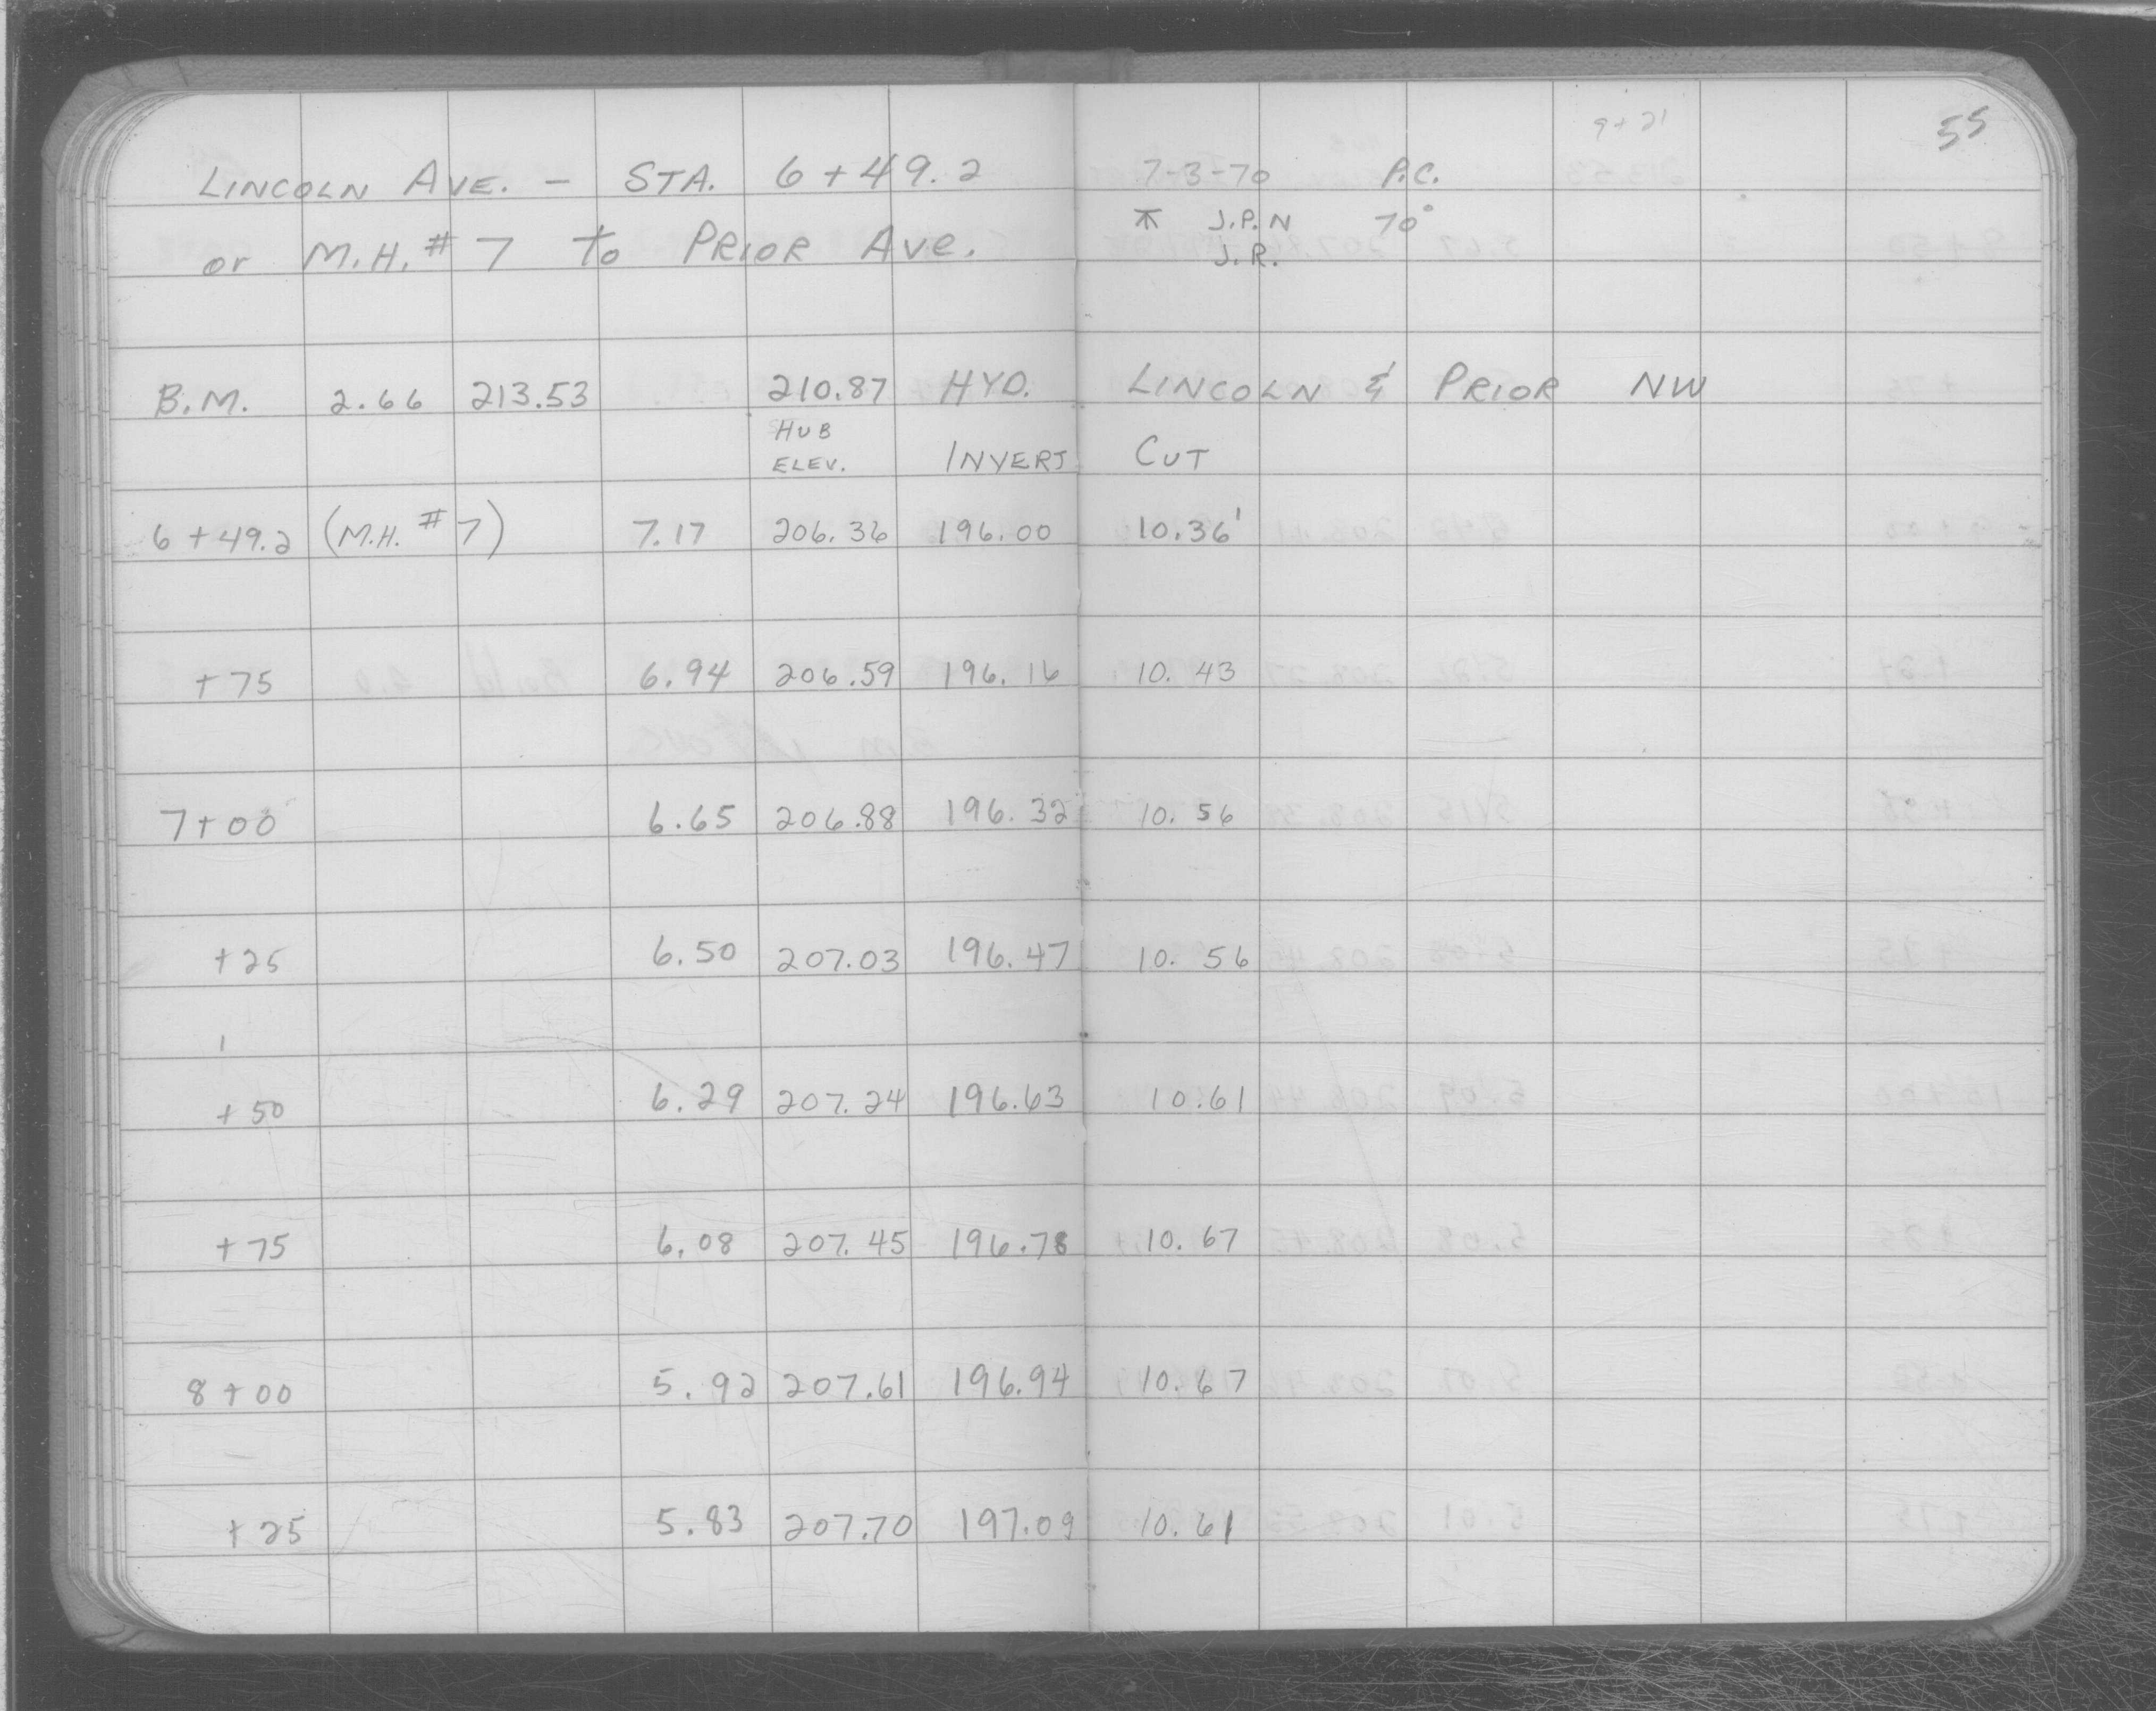 9+21
55
LINCOLN AVE. - STA. 6+49.2 7-3-70 P.C.
or M.H.#7 to PRIOR AVE. J.P.N 70°
J.R.
B.M. 2.66 213.53 210.87 HYD. LINCOLN & PRIOR NW
HUB
ELEV. INVERT CUT
6+49.2 (M.H. #7) 7.17 206.36 196.00 10.36'
+75 6.94 206.59 196.16 10.43
7+00 6.65 206.88 196.32 10.56
+25 6.50 207.03 196.47 10.56
+50 6.29 207.24 196.63 10.61
+75 6.08 207.45 196.78 10.67
8+00 5.92 207.61 196.94 10.67
+25 5.83 207.70 197.09 10.61